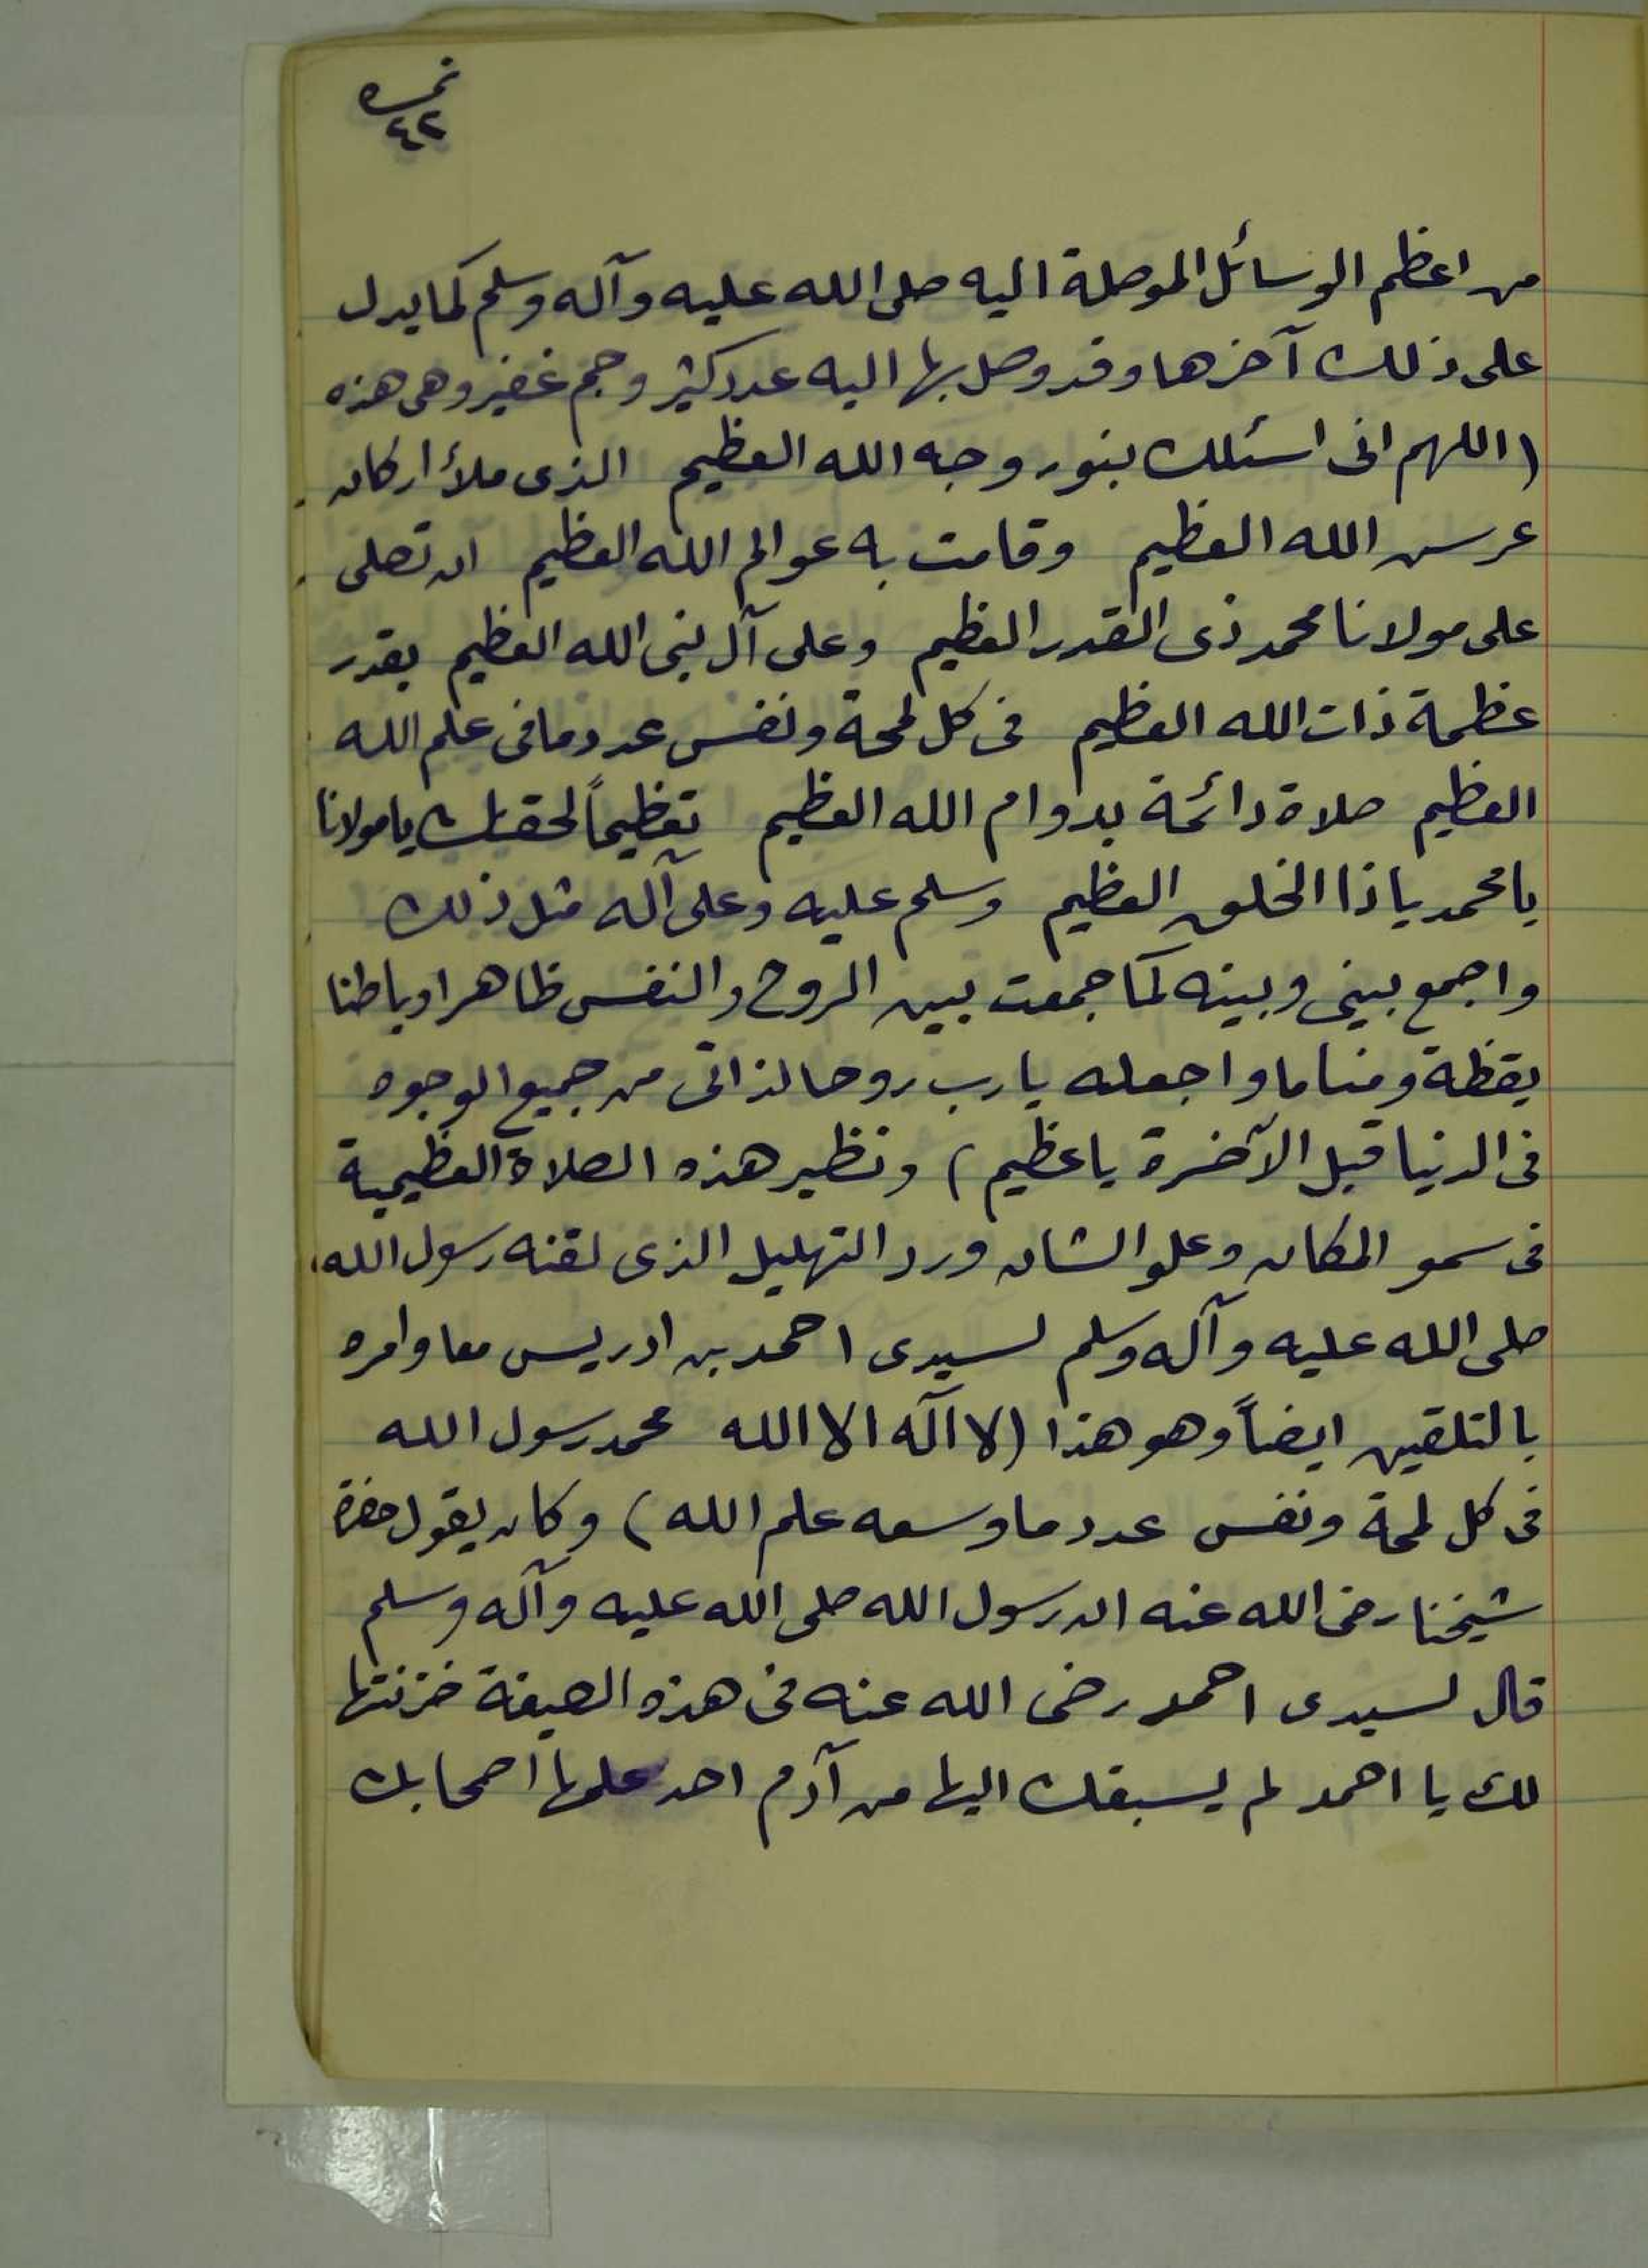 نمره
٤٢
من اعظم الوسائل الموصلة اليه صلى الله عليه وآله وسلم كما يدل
على ذلك آخرها وقد وصل بها اليه عدد كثير وجم غفير وهى هذه
(اللهم انى اسئلك بنور وجه الله العظيم الذى ملأ اركان
عرش الله العظيم وقامت به عوالم الله العظيم ان تصلى
على مولانا محمد ذى القدر العظيم وعلى آل نبى الله العظيم بقدر
عظمة ذات الله العظيم فى كل لمحة ونفس عدد ما فى علم الله
العظيم صلاة دائمة بدوام الله العظيم تعظيماً لحقك يا مولانا
يا محمد يا ذا الخلق العظيم وسلم عليه وعلى آله مثل ذلك
واجمع بينى وبينه كما جمعت بين الروح والنفس ظاهرا وباطنا
يقظة ومناما واجعله يا رب روحا لذاتى من جميع الوجوه
فى الدنيا قبل الآخرة يا عظيم) ونظير هذه الصلاة العظيمية
فى سمو المكان وعلو الشان ورد التهليل الذى لقنه رسول الله
صلى الله عليه وآله وسلم لسيدى احمد بن ادريس معا وامره
بالتلقين ايضاً وهو هذا (لا اله الا الله محمد رسول الله
فى كل لمحة ونفس عدد ما وسعه علم الله) وكان يقول حضرة
شيخنا رضى الله عنه ان رسول الله صلى الله عليه وآله وسلم
قال لسيدى احمد رضى الله عنه فى هذه الصيغة خزنتها
لك يا احمد لم يسبقك اليها من آدم احد علمها اصحابك